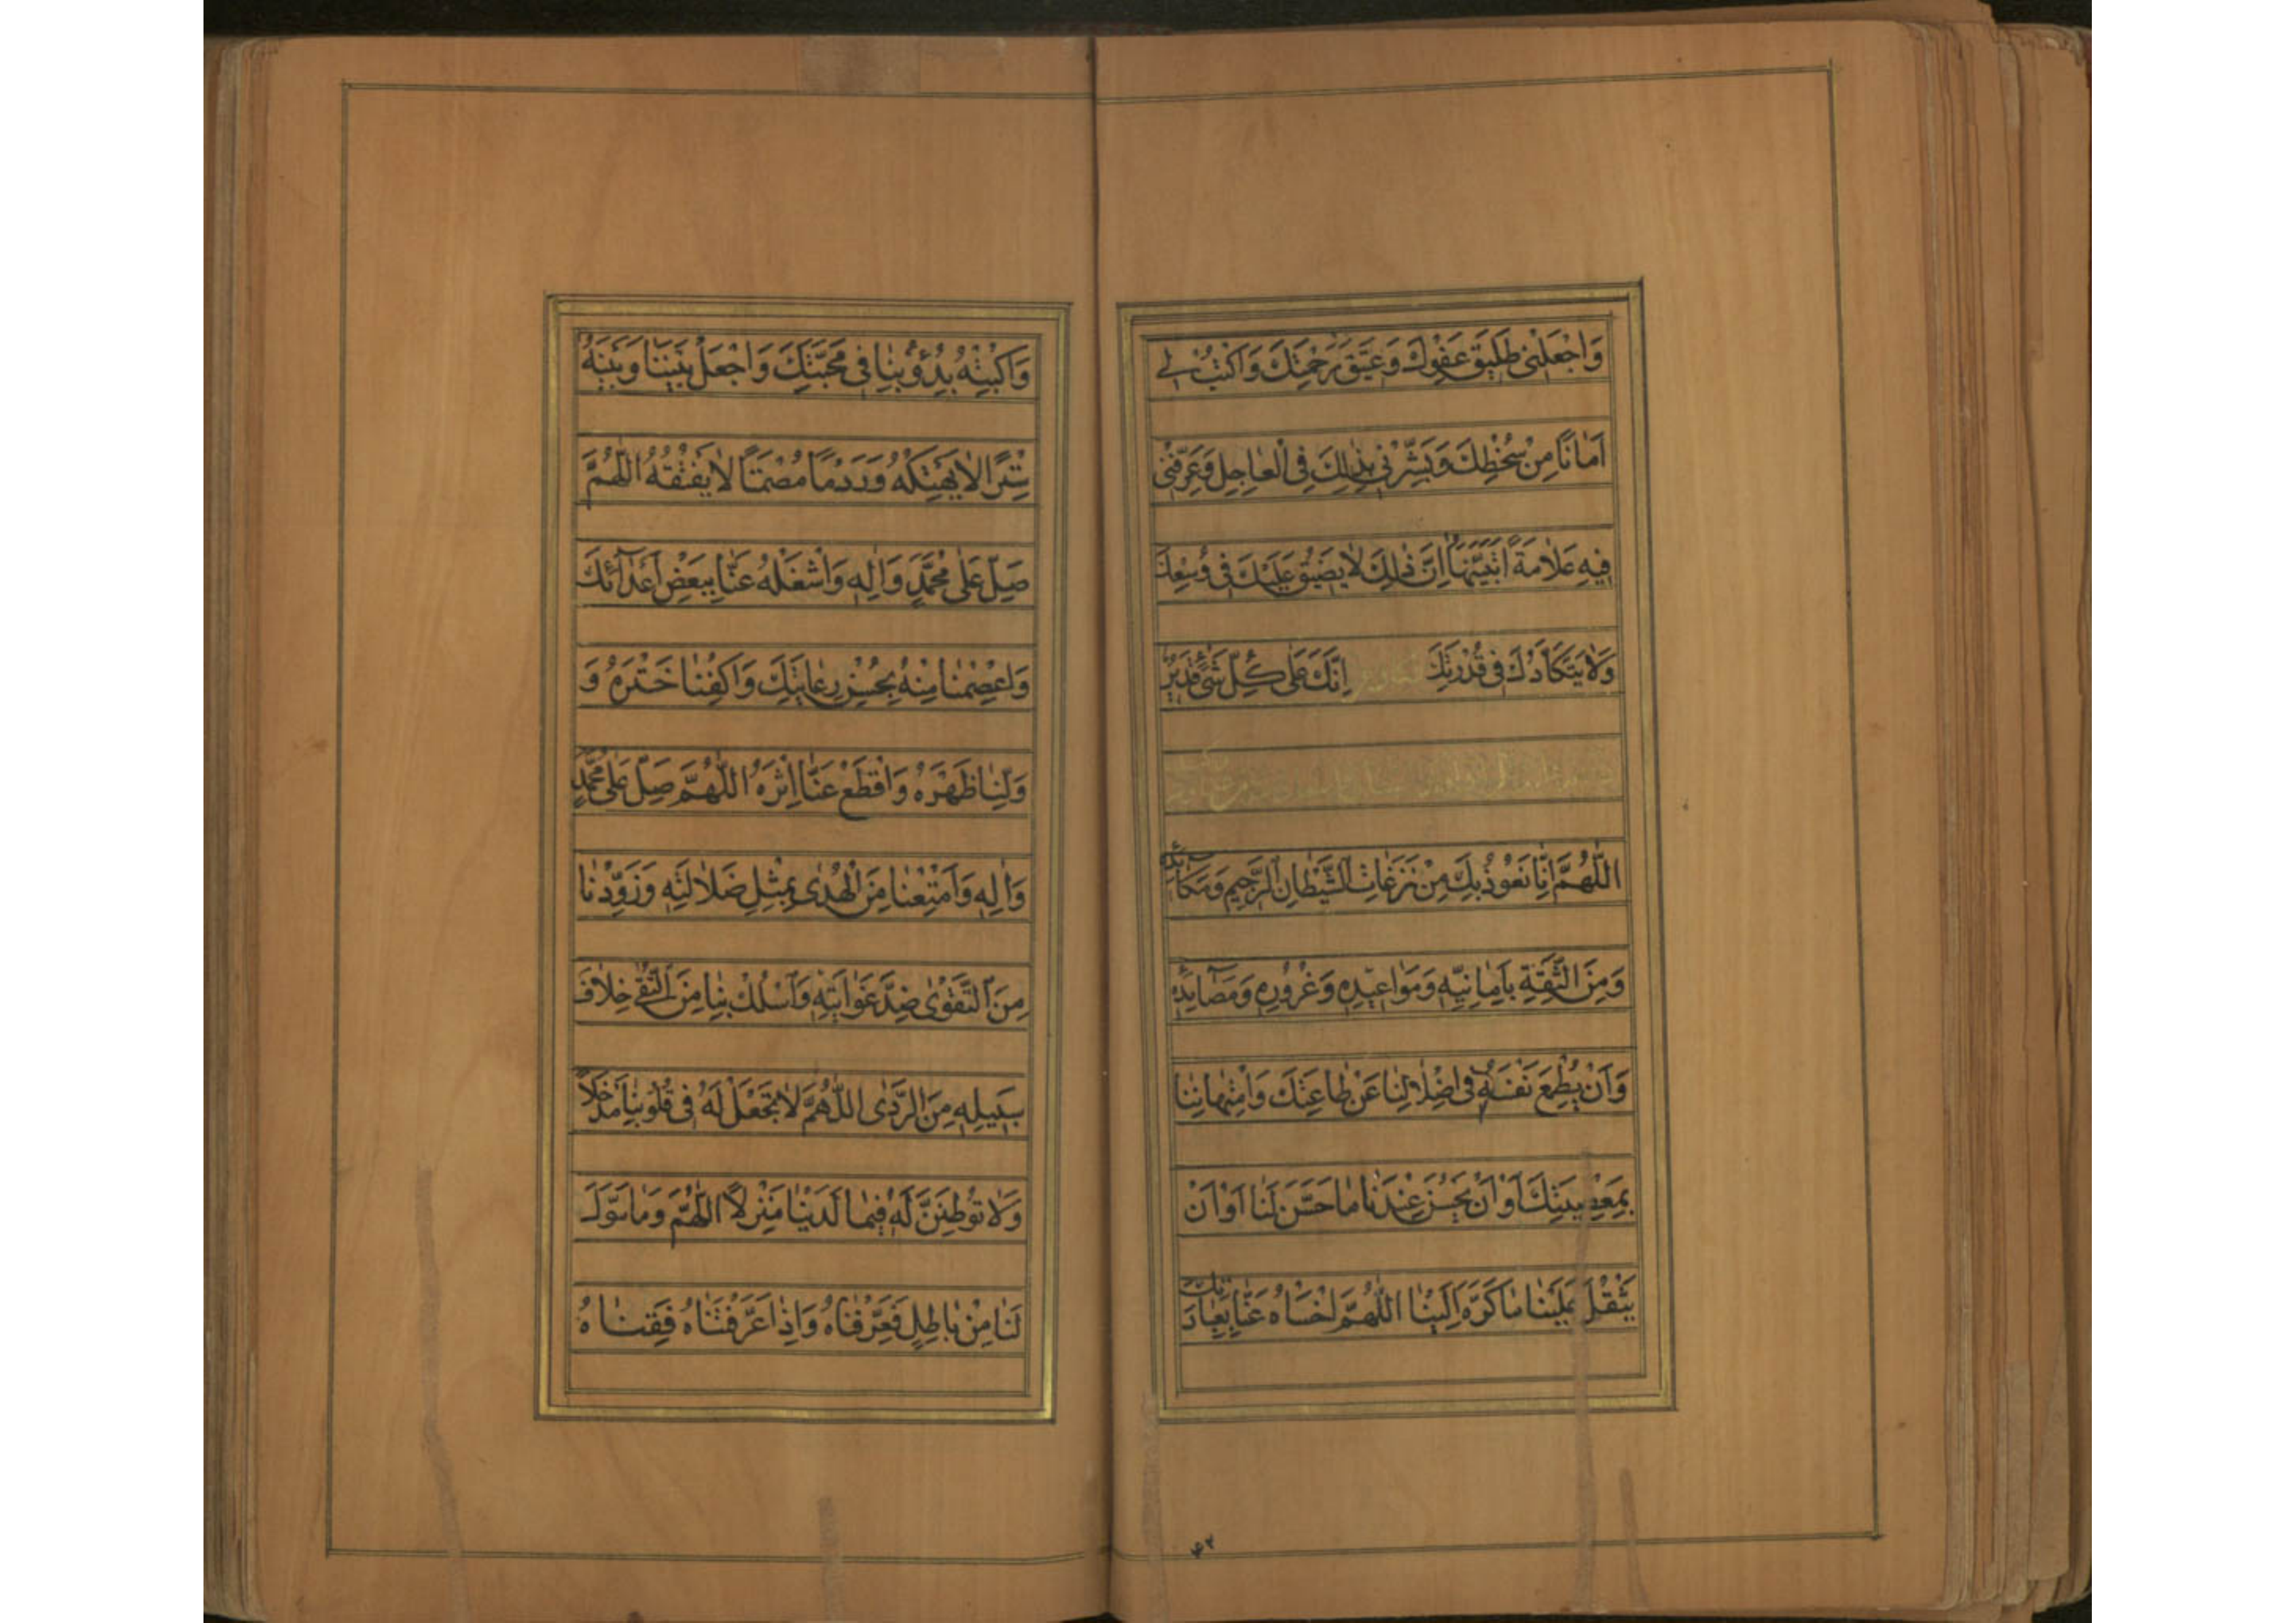 وَاجْعَلْنِی طَلِیقَ عَفْوِكَ وَعَتِیقَ رَحْمَتِكَ وَاكْتُبْ لِی
اَمَانًا مِنْ سُخْطِكَ وَبَشِّرْنِی بِذٰلِكَ فِی الْعَاجِلِ وَعَرِّفْنِی
فِیهِ عَلَامَةً اَتَبَیَّنُهَا اِنَّ ذٰلِكَ لَا یَضِیقُ عَلَیْكَ فِی وُسْعِكَ
وَلَا یَتَكَأَّدُكَ فِی قُدْرَتِكَ اِنَّكَ عَلٰی كُلِّ شَیْءٍ قَدِیرٌ
اَللّٰهُمَّ اِنَّا نَعُوذُ بِكَ مِنْ نَزَغَاتِ الشَّیْطَانِ الرَّجِیمِ وَمَكَائِدِهِ
وَمِنَ الثِّقَةِ بِاَمَانِیِّهِ وَمَوَاعِیدِهِ وَغُرُورِهِ وَمَصَآئِدِهِ
وَاَنْ یُطْمِعَ نَفْسَهُ فِی اِضْلَالِنَا عَنْ طَاعَتِكَ وَامْتِهَانِنَا
بِمَعْصِیَتِكَ اَوْ اَنْ یَحْسُنَ عِنْدَنَا مَا حَسَّنَ لَنَا اَوْ اَنْ
یَثْقُلَ عَلَیْنَا مَا كَرَّهَ اِلَیْنَا اَللّٰهُمَّ اخْسَأْهُ عَنَّا بِعِبَادَتِكَ
وَاكْبِتْهُ بِدُؤُوبِنَا فِی مَحَبَّتِكَ وَاجْعَلْ بَیْنَنَا وَبَیْنَهُ
سِتْرًا لَا یَهْتِكُهُ وَرَدْمًا مُصْمَتًا لَا یَفْتُقُهُ اَللّٰهُمَّ
صَلِّ عَلٰی مُحَمَّدٍ وَاٰلِهِ وَاشْغَلْهُ عَنَّا بِبَعْضِ اَعْدَآئِكَ
وَاعْصِمْنَا مِنْهُ بِحُسْنِ رِعَایَتِكَ وَاكْفِنَا خَتْرَهُ وَ
وَلِّنَا ظَهْرَهُ وَاقْطَعْ عَنَّا اِثْرَهُ اَللّٰهُمَّ صَلِّ عَلٰی مُحَمَّدٍ
وَاٰلِهِ وَاَمْتِعْنَا مِنَ الْهُدٰی بِمِثْلِ ضَلَالَتِهِ وَزَوِّدْنَا
مِنَ التَّقْوٰی ضِدَّ غَوَایَتِهِ وَاسْلُكْ بِنَا مِنَ التُّقٰی خِلَافَ
سَبِیلِهِ مِنَ الرَّدٰی اَللّٰهُمَّ لَا تَجْعَلْ لَهُ فِی قُلُوبِنَا مَدْخَلًا
وَلَا تُوطِنَنَّ لَهُ فِیمَا لَدَیْنَا مَنْزِلًا اَللّٰهُمَّ وَمَا سَوَّلَ
لَنَا مِنْ بَاطِلٍ فَعَرِّفْنَاهُ وَاِذَا عَرَّفْتَنَاهُ فَقِنَاهُ